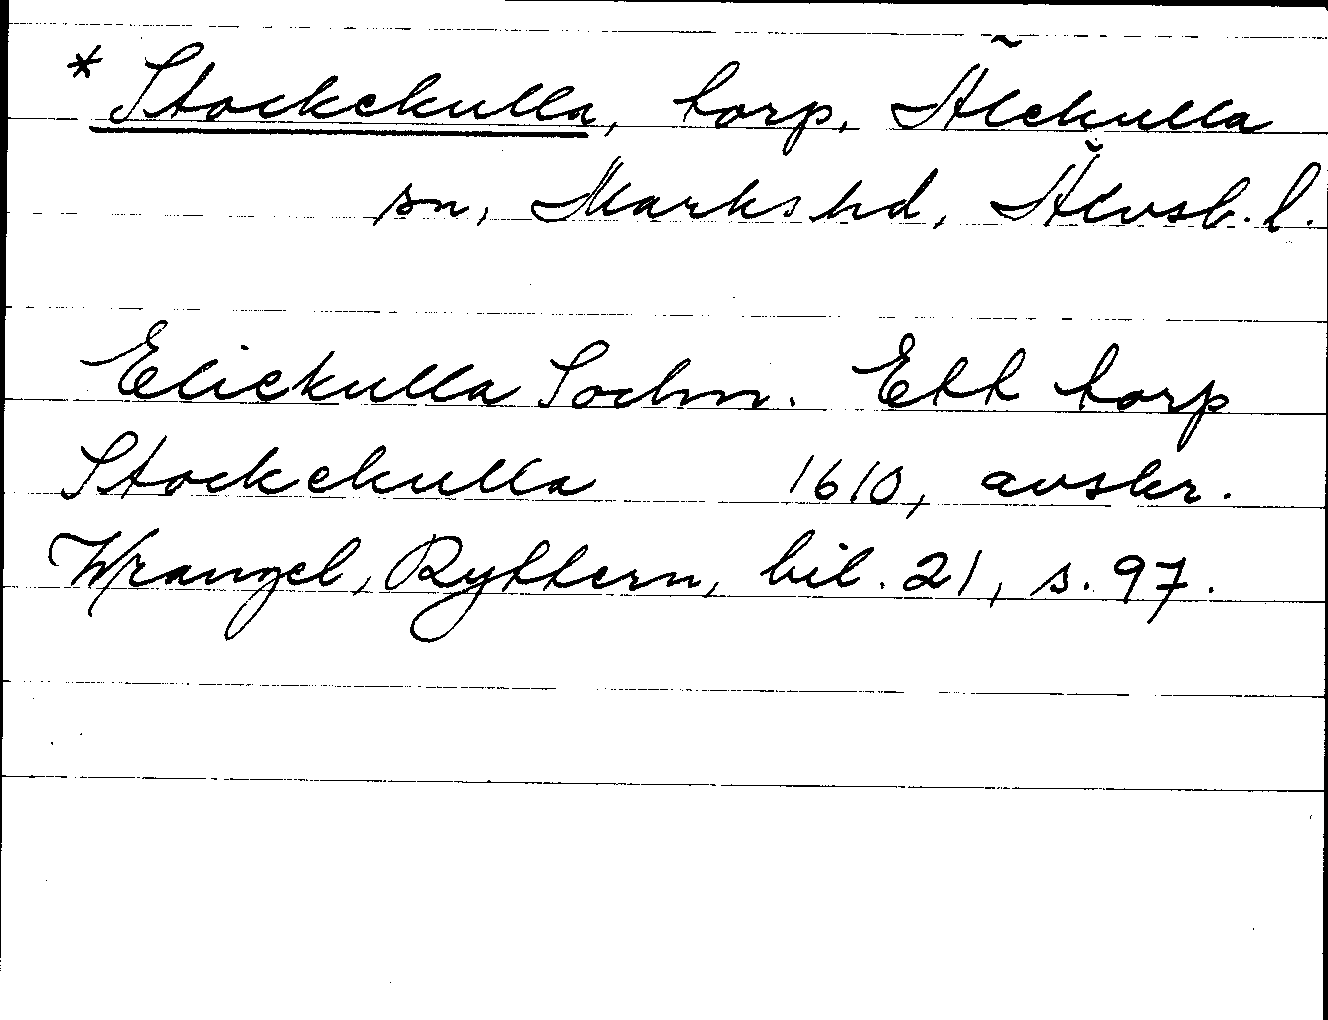 * Stockekulla, torp, Älekulla
sn, Marks hd, Älvsb. l.
Elickulla Sochn. Ett torp
Stockekulla 1610, avskr.
Wrangel, Ryttern, bil. 21, s. 97.